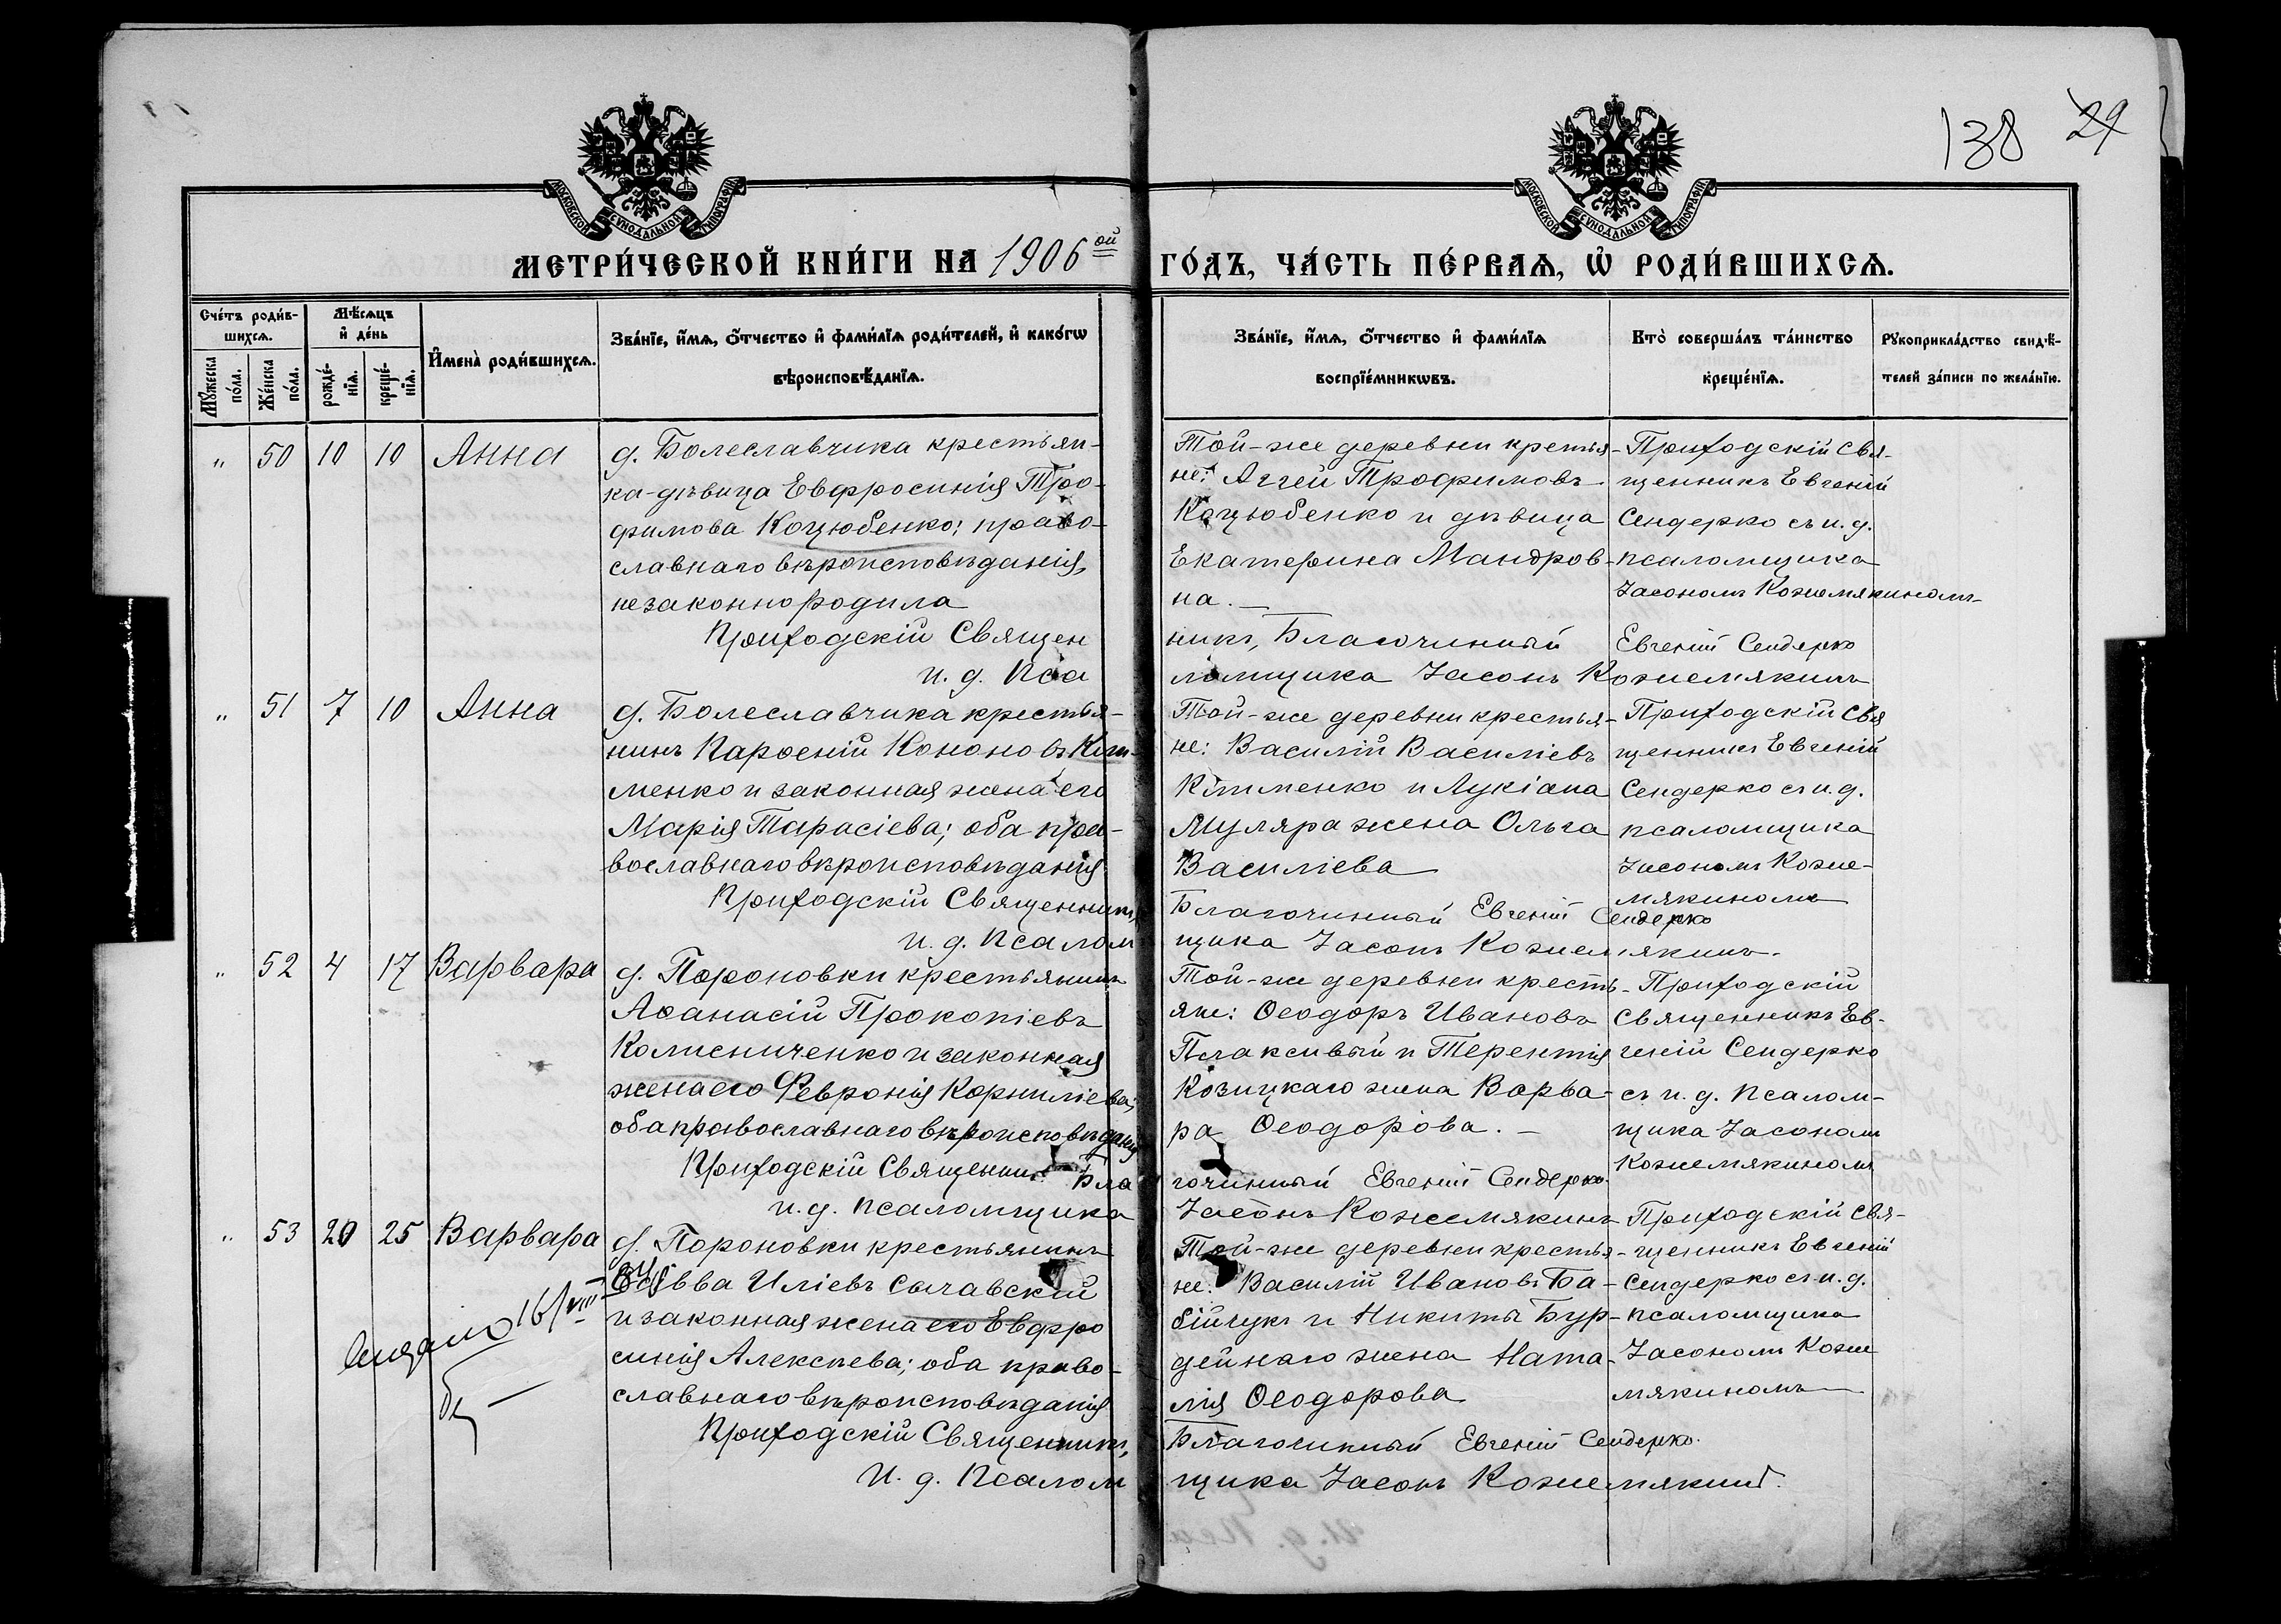 138 29
МОСКОВСКОЙ СѴНОДАЛЬНОЙ ТИПОГРАФІИ
МОСКОВСКОЙ СѴНОДАЛЬНОЙ ТИПОГРАФІИ
МЕТРИ́ЧЕСКОЙ КНИ́ГИ НА 1906 ой ГО́ДЪ, ЧА́СТЬ ПЕ́РВАѦ, Ѡ҆ РОДИ́ВШИХСѦ.
Сче́тъ роди́в-
шихсѧ.
Мꙋжеска по́ла.
Же́нска по́ла.
Мѣ́сѧцъ
и҆ де́нь
рожде́-
нїѧ.
креще́-
нїѧ.
И҆мена̀ роди́вшихсѧ.
Зва́нїе, и҆́мѧ, ѻ҆́тчество и҆ фами́лїѧ роди́телей, и҆ како́гѡ
вѣроисповѣ́данїѧ.
Зва́нїе, и҆́мѧ, ѻ҆́тчество и҆ фами́лїѧ
воспрїе́мникѡвъ.
Кто̀ соверша́лъ та́инство
креще́нїѧ.
Рꙋкоприкла́дство свидѣ́-
телей за́писи по жела́нїю.
" 50 10 10 Анна
д. Болеславчика крестьян-
ка-дѣвица Евфросинія Тро-
фимова Коцюбенко; право-
славнаго вѣроисповѣданія,
незаконно родила
Той-же деревни кретья-
не: Аггей Трофимовъ
Коцюбенко и дѣвица
Екатерина Мандров-
на.
Приходскій Свя-
щенникъ Евгеній
Сендерко съ и. д.
псаломщика
Іасономъ Кожемякиномъ
Приходскій Священникъ, Благочинный Евгеній Сендерко
и. д. Псаломщика Іасонъ Кожемякинъ
" 51 7 10 Анна
д. Болеславчика крестья-
нинъ Парѳеній Кононовъ Кли-
менко и законная жена его
Марія Тарасіева; оба пра-
вославнаго вѣроисповѣданія
Той-же деревни крестья-
не: Василій Василіевъ
Клименко и Лукіана
Муляра жена Ольга
Василіева
Приходскій Свя
щенникъ Евгеній
Сендерко съ и. д.
псаломщика
Іасономъ Коже-
мякиномъ
Приходскій Священникъ, Благочинный Евгеній Сендерко
и. д. Псаломщика Іасонъ Кожемякинъ.
" 52 4 17 Варвара
д. Пороновки крестьянинъ
Аѳанасій Прокопіевъ
Колисниченко и законная
жена его Февронія Корниліева;
оба православнаго вѣроисповѣданія
Той-же деревни кресть-
яне: Ѳеодоръ Ивановъ
Плаксивый и Терентія
Козицкаго жена Варва-
ра Ѳеодорова.
Приходскій
Священникъ Ев-
геній Сендерко
съ и. д. Псалом-
щика Іасономъ
Кожемякиномъ
Приходскій Священникъ Благочинный Евгеній Сендерко.
и. д. псаломщика Іасонъ Кожемякинъ
" 53 20 25 Варвара
д. Пороновки крестьянинъ
Савва Иліевъ Сычавский
и законная жена его Евфро
синія Алексѣева; оба право-
славнаго вѣроисповѣданія
Той-же деревни крестья-
не: Василій Ивановъ Ба-
бійчукъ и Никиты Бур-
дейнаго жена Ната-
лія Ѳеодорова
Приходскій Свя-
щенникъ Евгеній
Сендерко съ и. д.
псаломщика
Іасономъ Коже
мякиномъ
16/VIII
Приходскій Священникъ, Благочинный Евгеній Сендерко.
И. д. Псаломщика Іасонъ Кожемякинъ.